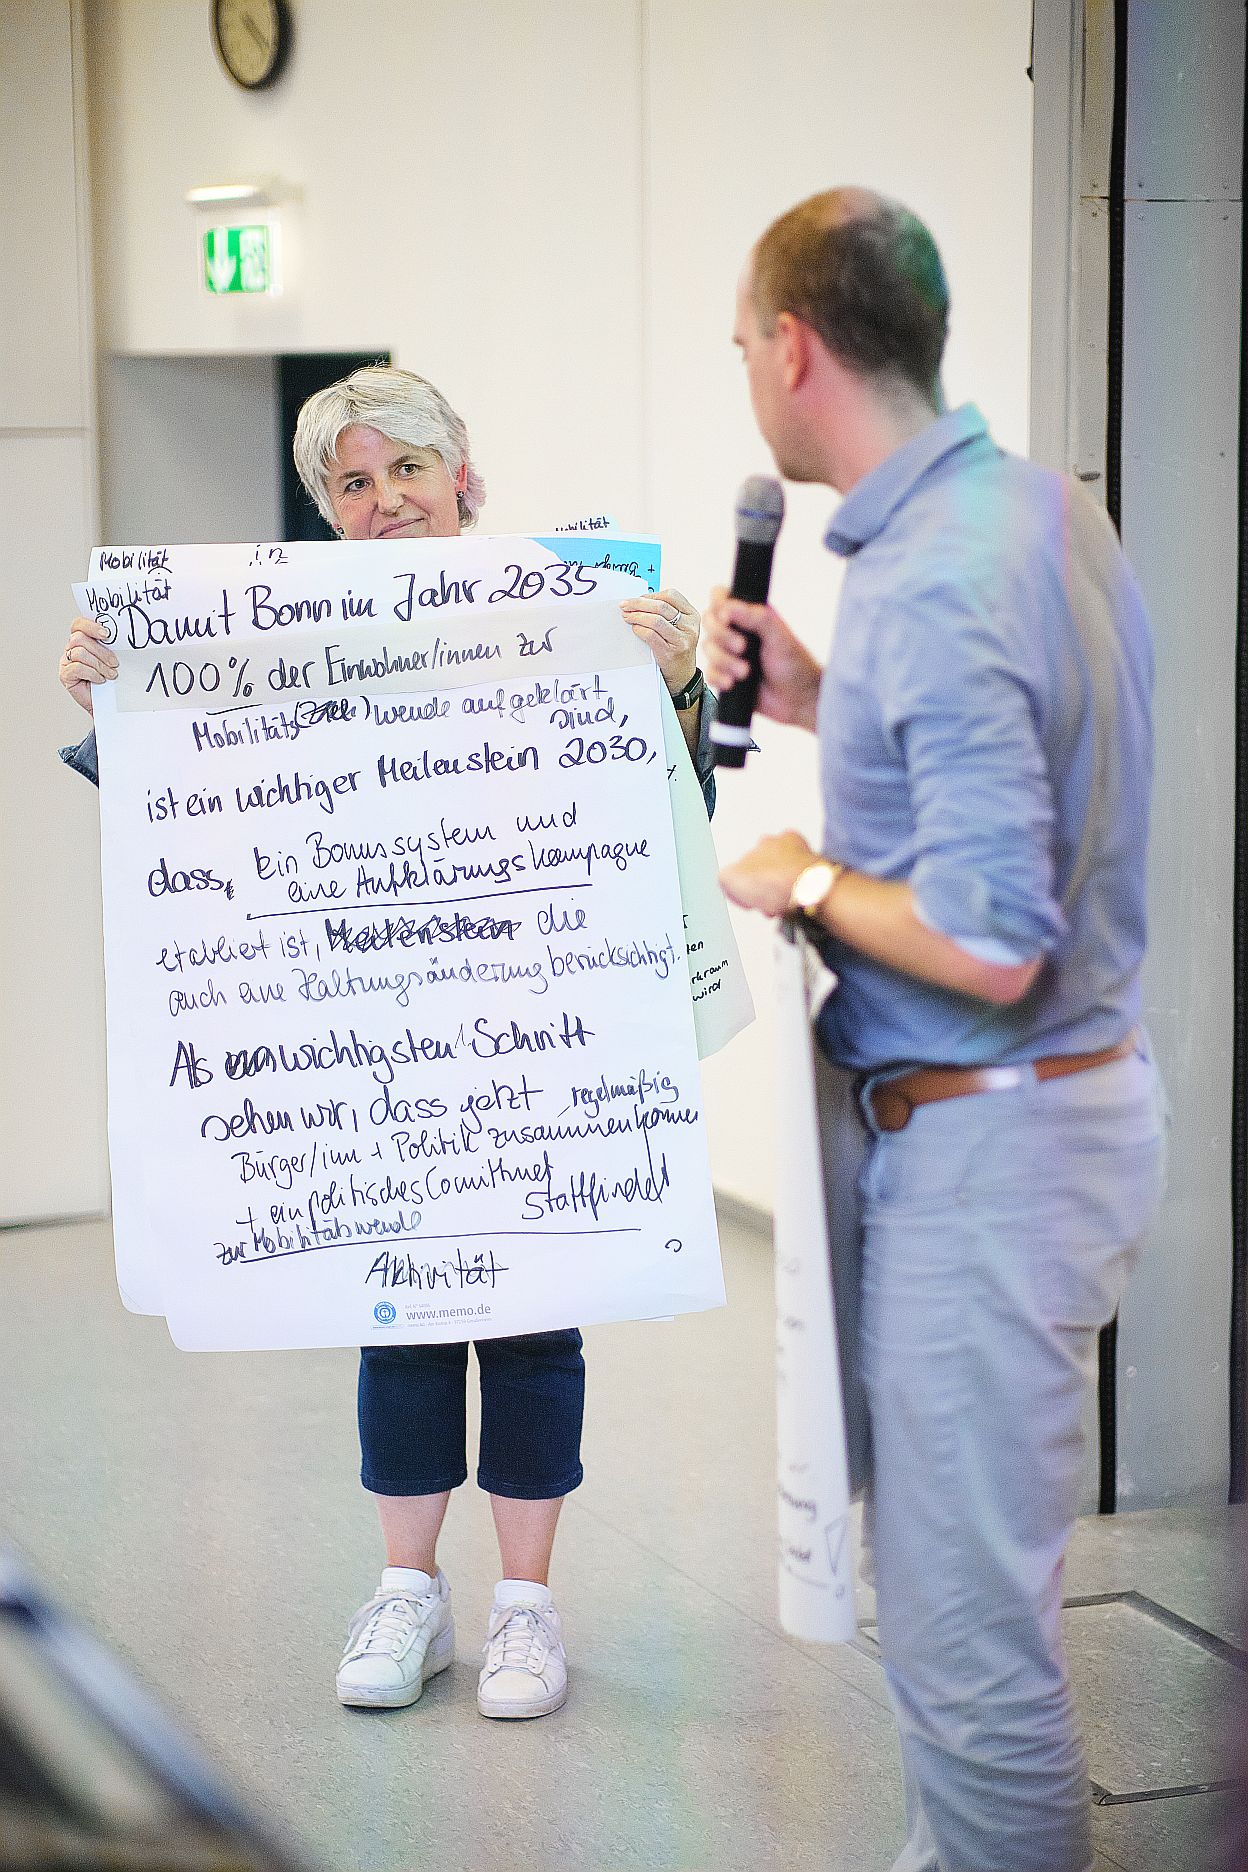 Mobilität
Mobilität
Mobilität
⑤ Damit Bonn im Jahr 2035
100% der Einwohner/innen zur
Mobilitäts wende aufgeklärt
sind,
ist ein wichtiger Meilenstein 2030,
dass, Ein Bonussystem und
eine Aufklärungskampagne
etabliert ist, Meilenstein die
auch eine Haltungsänderung berücksichtigt.
Als wichtigsten Schritt
sehen wir, dass jetzt regelmäßig
Bürger/inn + Politik zusammenkommen
+ ein politisches Comittment
zur Mobilitätswende stattfindet
Aktivität
www.memo.de
ten
wird